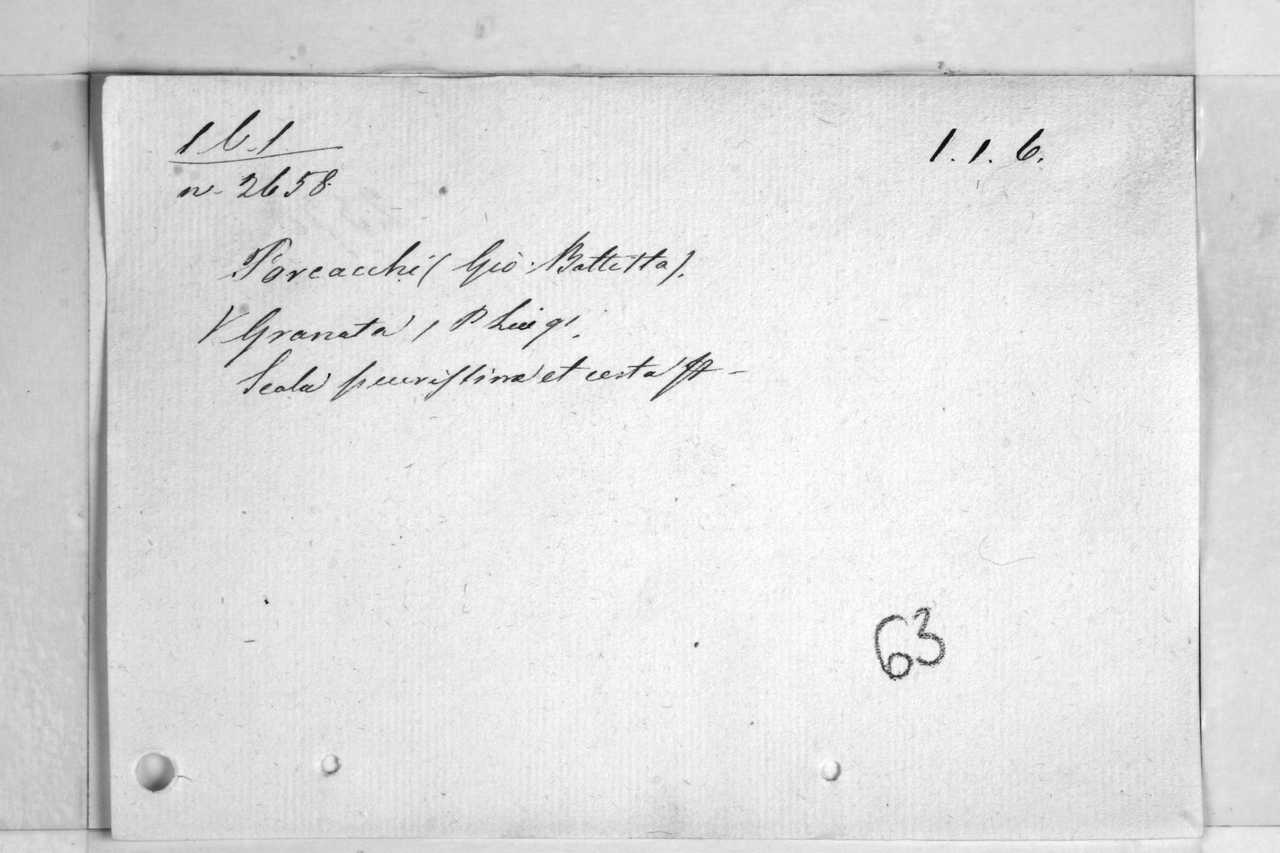 1.6.1
1.1.6.
n. 2658
Porcacchi (Gio: Battista).
V Granata, P Luigi.
Scala securissima et certa
63